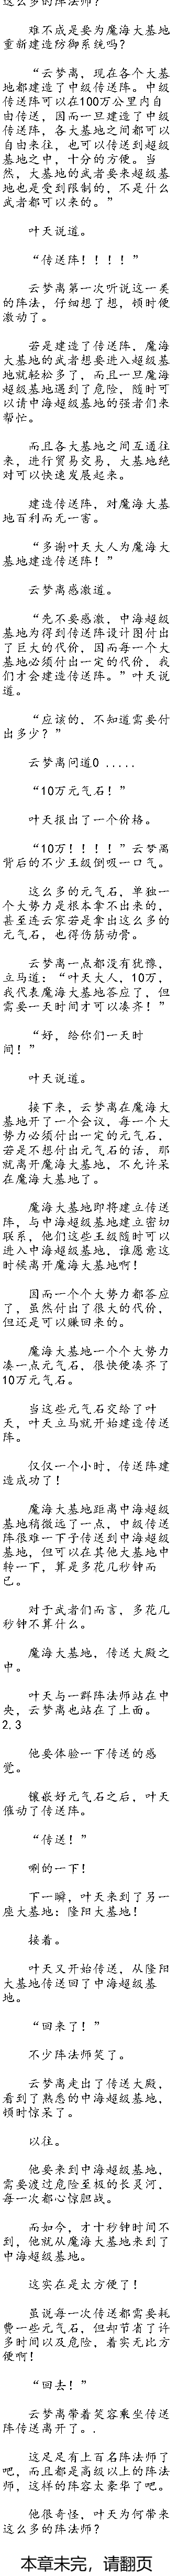 这么多的阵法师?
难不成是要为魔海大基地
重新建造防御系统吗?
“云梦离,现在各个大基
地都建造了中级传送阵。中级
传送阵可以在100万公里内自
由传送,因而一旦建造了中级
传送阵,各大基地之间都可以
自由来往,也可以传送到超级
基地之中,十分的方便。当
然,大基地的武者要来超级基
地也是受到限制的,不是什么
武者都可以来的。”
叶天说道。
“传送阵!!!!”
云梦离第一次听说这一类
的阵法,仔细想了想,顿时便
激动了。
若是建造了传送阵,魔海
大基地的武者想要进入超级基
地就轻松多了,而且一旦魔海
超级基地遇到了危险,随时可
以请中海超级基地的强者们来
帮忙。
而且各大基地之间互通往
来,进行贸易交易,大基地绝
对可以快速发展起来。
建造传送阵,对魔海大基
地百利而无一害。
“多谢叶天大人为魔海大
基地建造传送阵!”
云梦离感激道。
“先不要感激,中海超级
基地为得到传送阵设计图付出
了巨大的代价,因而每一个大
基地必须付出一定的代价,我
们才会建造传送阵。”叶天说
道。
“应该的,不知道需要付
出多少?”
云梦离问道0 .....
“10万元气石!”
叶天报出了一个价格。
“10万!!!!”云梦离
背后的不少王级倒吸一口气。
这么多的元气石,单独一
个大势力是根本拿不出来的,
甚至连云家若是拿出这么多的
元气石,也得伤筋动骨。
云梦离一点都没有犹豫,
立马道:“叶天大人,10万,
我代表魔海大基地答应了,但
需要一天时间才可以凑齐!”
“好,给你们一天时
间!”
叶天说道。
接下来,云梦离在魔海大
基地开了一个会议,每一个大
势力必须付出一定的元气石,
若是不想付出元气石的话,那
就离开魔海大基地,不允许呆
在魔海大基地了。
魔海大基地即将建立传送
阵,与中海超级基地建立密切
联系,他们这些王级随时可以
进入中海超级基地,谁愿意这
时候离开魔海大基地啊!
因而一个个大势力都答应
了,虽然付出了很大的代价,
但还是可以赚回来的。
魔海大基地一个个大势力
凑一点元气石,很快便凑齐了
10万元气石。
当这些元气石交给了叶
天,叶天立马就开始建造传送
阵。
仅仅一个小时,传送阵建
造成功了!
魔海大基地距离中海超级
基地稍微远了一点,中级传送
阵很难一下子传送到中海超级
基地,但可以在其他大基地中
转一下,算是多花几秒钟而
已。
对于武者们而言,多花几
秒钟不算什么。
魔海大基地,传送大殿之
中。
叶天与一群阵法师站在中
央,云梦离也站在了上面。
2.3
他要体验一下传送的感
觉。
镶嵌好元气石之后,叶天
催动了传送阵。
“传送!”
唰的一下!
下一瞬,叶天来到了另一
座大基地:隆阳大基地!
接着。
叶天又开始传送,从隆阳
大基地传送回了中海超级基
地。
“回来了!”
不少阵法师笑了。
云梦离走出了传送大殿,
看到了熟悉的中海超级基地,
顿时惊呆了。
以往。
他要来到中海超级基地,
需要渡过危险至极的长灵河,
每一次都心惊胆战。
而如今,才十秒钟时间不
到,他就从魔海大基地来到了
中海超级基地。
这实在是太方便了!
虽说每一次传送都需要耗
费一些元气石,但却节省了许
多时间以及危险,着实无比方
便啊!
“回去!”
云梦离带着笑容乘坐传送
阵传送离开了。.
这足足有上百名阵法师了
吧,而且都是高级以上的阵法
师,这样的阵容太豪华了吧。
他很奇怪,叶天为何带来
这么多的阵法师?
本章未完,请翻页